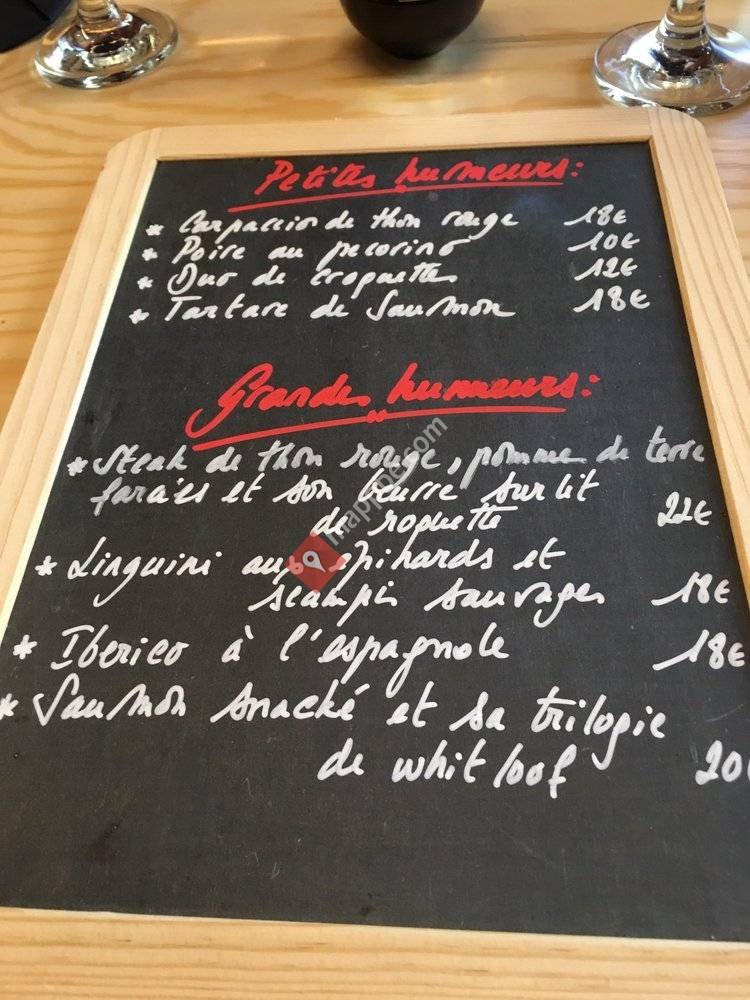 Petites humeurs:
* Carpaccio de thon rouge 18€
* Poire au pecorino 10€
* Duo de croquettes 12€
* Tartare de Saumon 18€
Grandes humeurs:
* Steak de thon rouge, pomme de terre
farcies et son beurre sur lit
de roquette 22€
* Linguini aux épinards et
scampis sauvages 18€
* Iberico à l'espagnole 18€
* Saumon snacké et sa trilogie
de whitloof 20€
mappbe.com